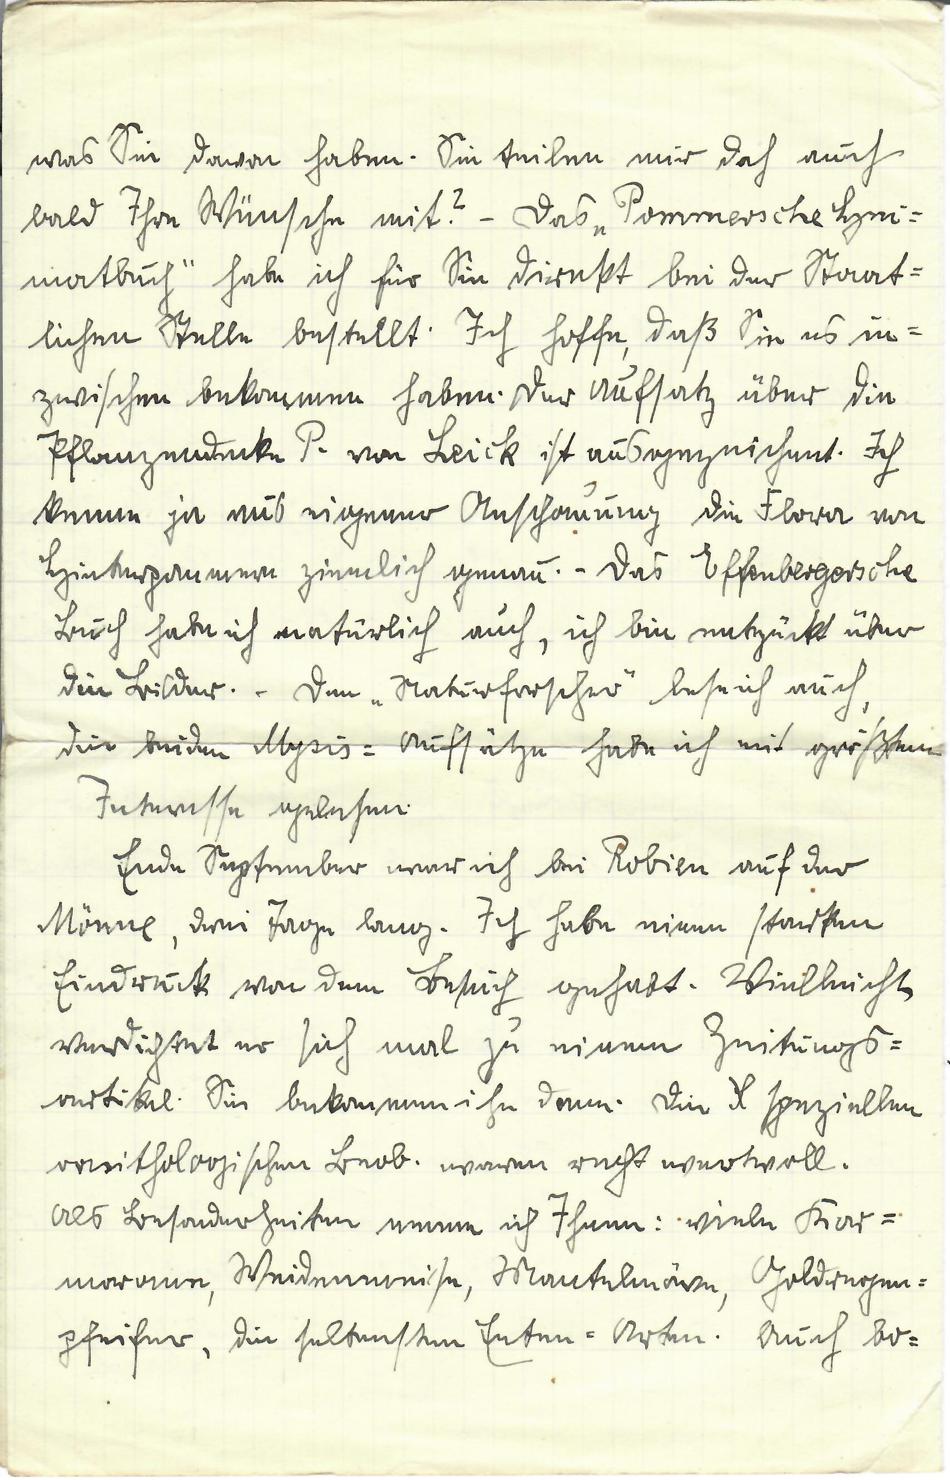 was Sie davon haben. Sie teilen mir doch auch
bald Ihre Wünsche mit? - Das „Pommersche Hei=
matbuch" habe ich für Sie direkt bei der Staat=
lichen Stelle bestellt. Ich hoffe, daß Sie es in=
zwischen bekommen haben. Der Aufsatz über die
Pflanzendecke P. von Leick ist ausgezeichnet. Ich
kenne ja aus eigener Anschauung die Flora von
Hinterpommern ziemlich genau. - Das Effenbergersche
Buch habe ich natürlich auch, ich bin entzückt über
die Bilder. - Den „Naturforscher" lese ich auch,
die beiden Mysis= Aufsätze habe ich mit größtem
Interesse gelesen.
Ende September war ich bei Robien auf der
Mönne, drei Tage lang. Ich habe einen starken
Eindruck von dem Besuch gehabt. Vielleicht
verdichtet er sich mal zu einem Zeitungs=
artikel. Sie bekommen ihn dann. Die speziellen
ornithologischen Beob. waren recht wertvoll.
Als Besonderheiten nenne ich Ihnen: viele Kor=
morane, Weidenmeise, Mantelmöwe, Goldregen=
pfeifer, die seltensten Enten= Arten. Auch bo=